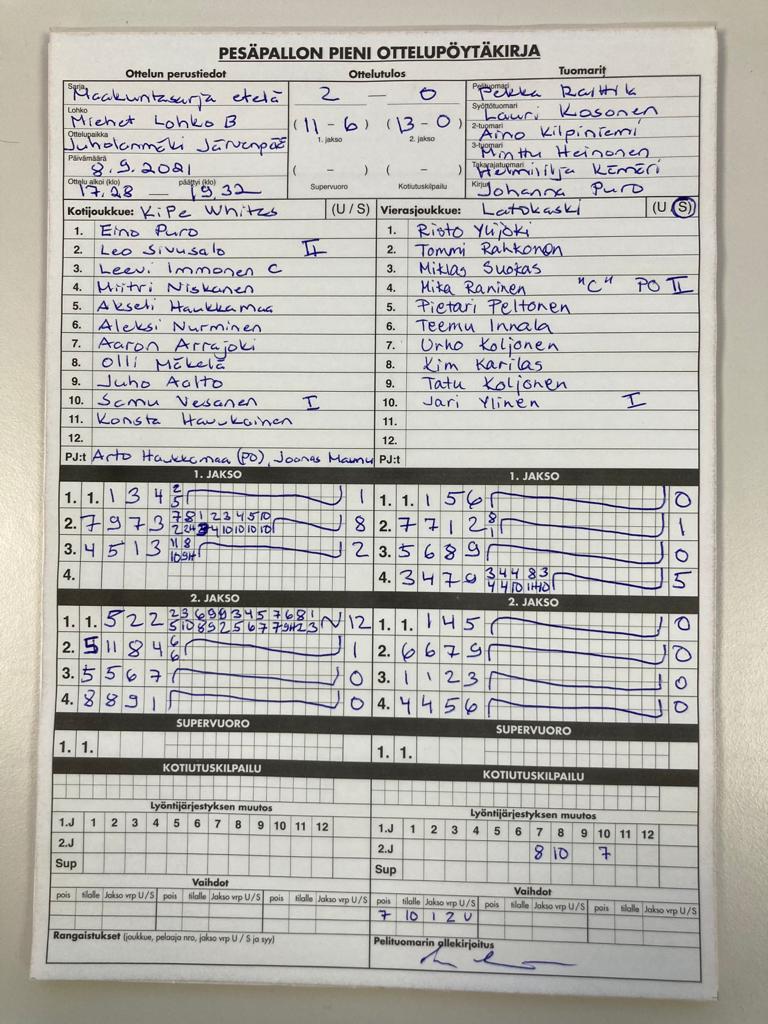 PESÄPALLON PIENI OTTELUPÖYTÄKIRJA
Ottelun perustiedot Ottelutulos Tuomarit
Sarja Maakuntasarja etelä
Lohko Miehet Lohko B
Ottelupaikka Juholanmäki Järvenpää
Päivämäärä 8.9.2021
Ottelu alkoi (klo) päättyi (klo)
17.28 — 19.32
2 — 0
(11-6) (13-0)
1. jakso 2. jakso
( - ) ( - )
Supervuoro Kotiutuskilpailu
Pelituomari Pekka Raittila
Syöttötuomari Lauri Kosonen
2-tuomari Aino Kilpiniemi
3-tuomari Minttu Heinonen
Takarajatuomari Helmililja Kemäri
Kirjuri Johanna Puro
Kotijoukkue: KiPe Whites (U / S)
1. Eino Puro
2. Leo Sivusalo II
3. Leevi Immonen C
4. Miitri Niskanen
5. Akseli Haukkamaa
6. Aleksi Nurminen
7. Aaron Arrajoki
8. Olli Mäkelä
9. Juho Aalto
10. Samu Vesanen I
11. Konsta Havukainen
12.
PJ:t Arto Haukkamaa (PO), Joonas
Vierasjoukkue: Latokaski (U / S)
1. Risto Ylijoki
2. Tommi Rahkonen
3. Miklas Suokas
4. Mika Raninen "C" PO II
5. Pietari Peltonen
6. Teemu Innala
7. Urho Koljonen
8. Kim Karilas
9. Tatu Koljonen
10. Jari Ylinen I
11.
12.
PJ:t
1. JAKSO
1. 1. 1 3 4 2 1
5
2. 7 9 7 3 7 8 1 2 3 4 5 10 8
3. 4 5 1 3 11 8 2
4.
1. JAKSO
1. 1. 1 5 6 0
2. 7 7 1 2 8 1
1
3. 5 6 8 9 0
4. 3 4 7 9 3 4 4 8 3 5
4 4 10 11 10
2. JAKSO
1. 1. 5 2 2 2 3 6 9 9 3 4 5 7 6 8 1 12
5 10 8 9 2 5 6 7 7 9 11 2 3
2. 5 11 8 4 6 1
6
3. 5 5 6 7 0
4. 8 8 9 1 0
2. JAKSO
1. 1. 1 4 5 0
2. 6 6 7 9 0
3. 1 1 2 3 0
4. 4 4 5 6 0
SUPERVUORO
1. 1.
SUPERVUORO
1. 1.
KOTIUTUSKILPAILU
KOTIUTUSKILPAILU
Lyöntijärjestyksen muutos
1.J 1 2 3 4 5 6 7 8 9 10 11 12
2.J
Sup
Lyöntijärjestyksen muutos
1.J 1 2 3 4 5 6 7 8 9 10 11 12
2.J 8 10 7
Sup
Vaihdot
pois tilalle Jakso vrp U/S pois tilalle Jakso vrp U/S pois tilalle Jakso vrp U/S
Vaihdot
pois tilalle Jakso vrp U/S pois tilalle Jakso vrp U/S pois tilalle Jakso vrp U/S
7 10 1 2 U
Rangaistukset (joukkue, pelaaja nro, jakso vrp U / S ja syy)
Pelituomarin allekirjoitus